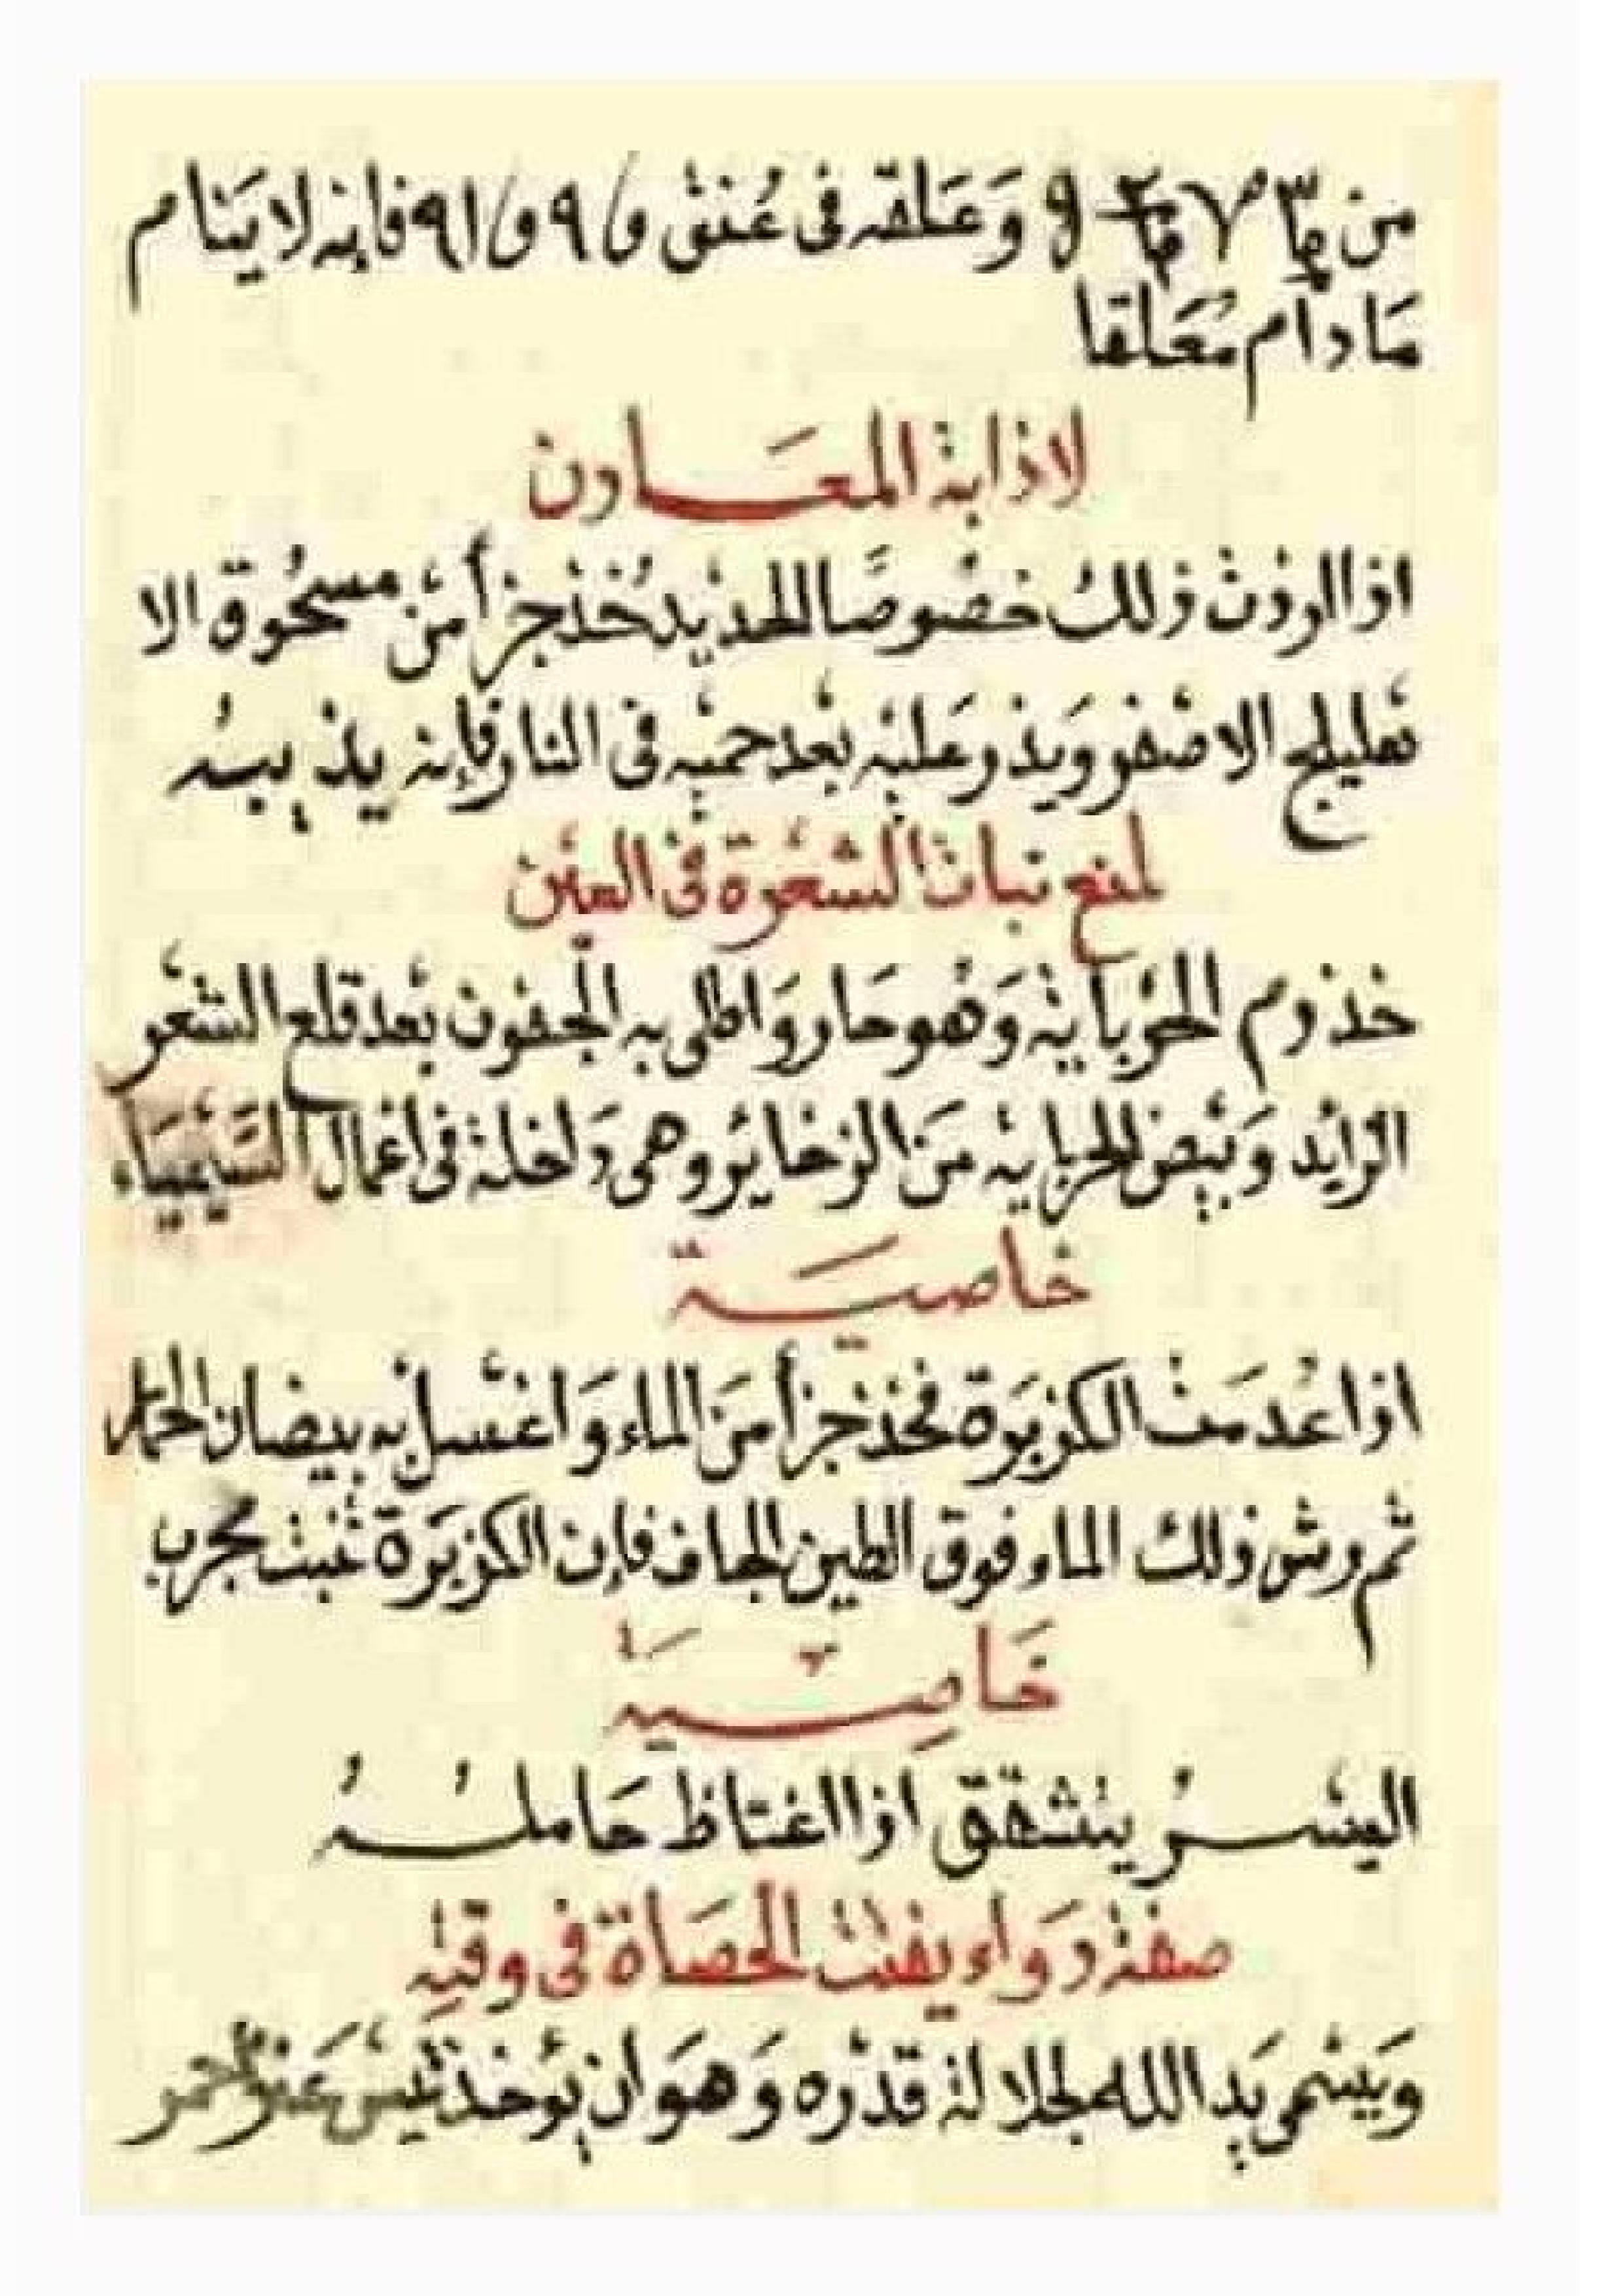 من وَعَلقه فى عُنق فإنه لا ينام
مَا دام مُعَلقا
لاذابة المعَـادن
اذا اردت ذلك خصُوصًا الحديد خُذ جزأ من مسحُوق الا
هليلج الاصفر وَيذر عَليْه بعْد حمْيه فى النار فإنه يذيبـه
لمنع نبات الشعْرة فى العيْن
خذ دم الحرْباية وَهْو حَار وَاطلى به الجفون بعْد قلع الشعْر
الزايْد وَبيْض الحرباية مَن الذخاير وهى دَاخلة فى اعْمال السِّيْميَاء
خاصيَـة
اذا عُدمَتْ الكزبَرة فخذ جزأ مَن الماء وَاغسْل به بيضات الحمَـ
ثم رش ذلك الماء فوق الطين الجاف فإن الكزبَرة تنبت مجرب
خَاصِـيَة
اليسْـرُ ينشقق اذا اغتاظ حَاملـهُ
صفة دَوَاء يفتت الحصَاة فى وقتِه
وَيسْمى يَد الله لجلالة قدْره وَهوَ ان يوْخذ تيْس عَنز احمر